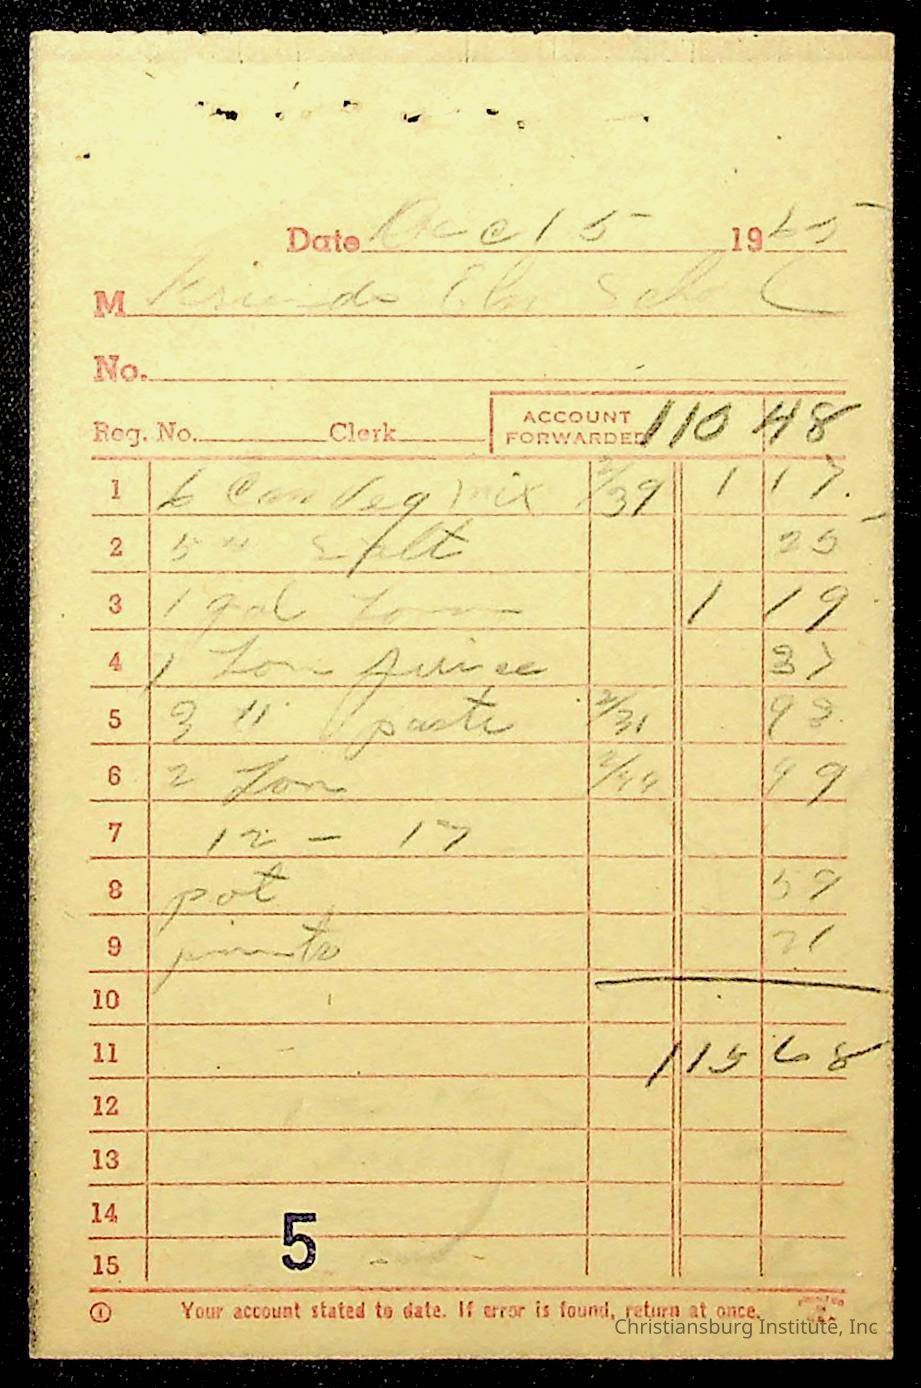 Date Dec 15 1965
M Friends Elm School
No.
Reg. No. Clerk ACCOUNT FORWARDED 110 48
1 6 Can Veg mix 2/39 1 17
2 5 " Salt 25
3 1 gal Tom 1 19
4 1 Tom juice 37
5 3 " paste 2/31 93
6 2 Tom 2/49 49
7 12 - 17
8 pot 59
9 21
10
11 115 68
12
13
14
15
5
Your account stated to date. If error is found, return at once.
Christiansburg Institute, Inc